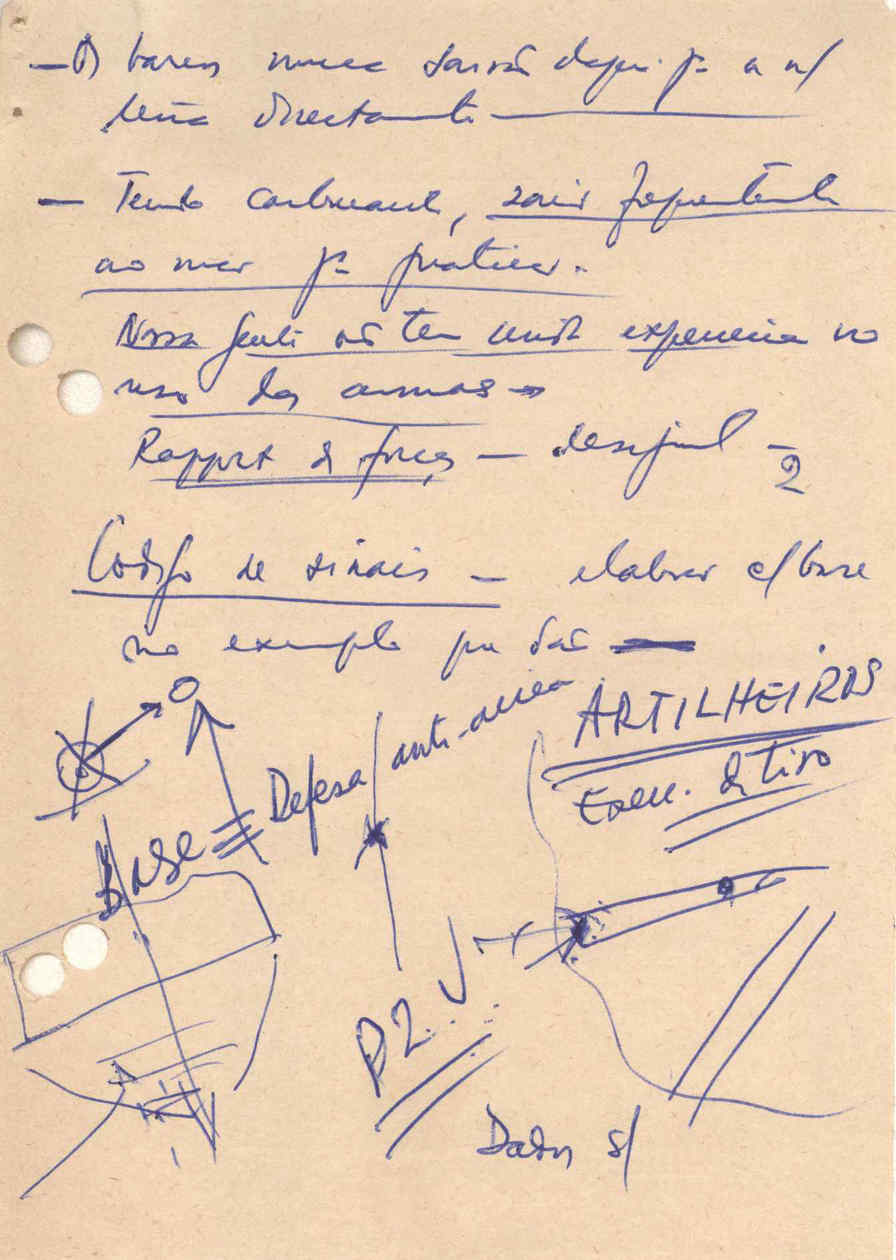 — Os barcos nunca
directamente —
— Tendo combustível, sair frequentemente
ao mar pª praticar.
Nossa gente não tem muita experiencia no
uso das armas →
Rapport de forças — desigual —
2
Codigo de sinais — elaborar c/ base
no exemplo que dão
ARTILHEIROS
Exerc. de tiro
Base = Defesa/anti-aérea
P2.V
Dados s/